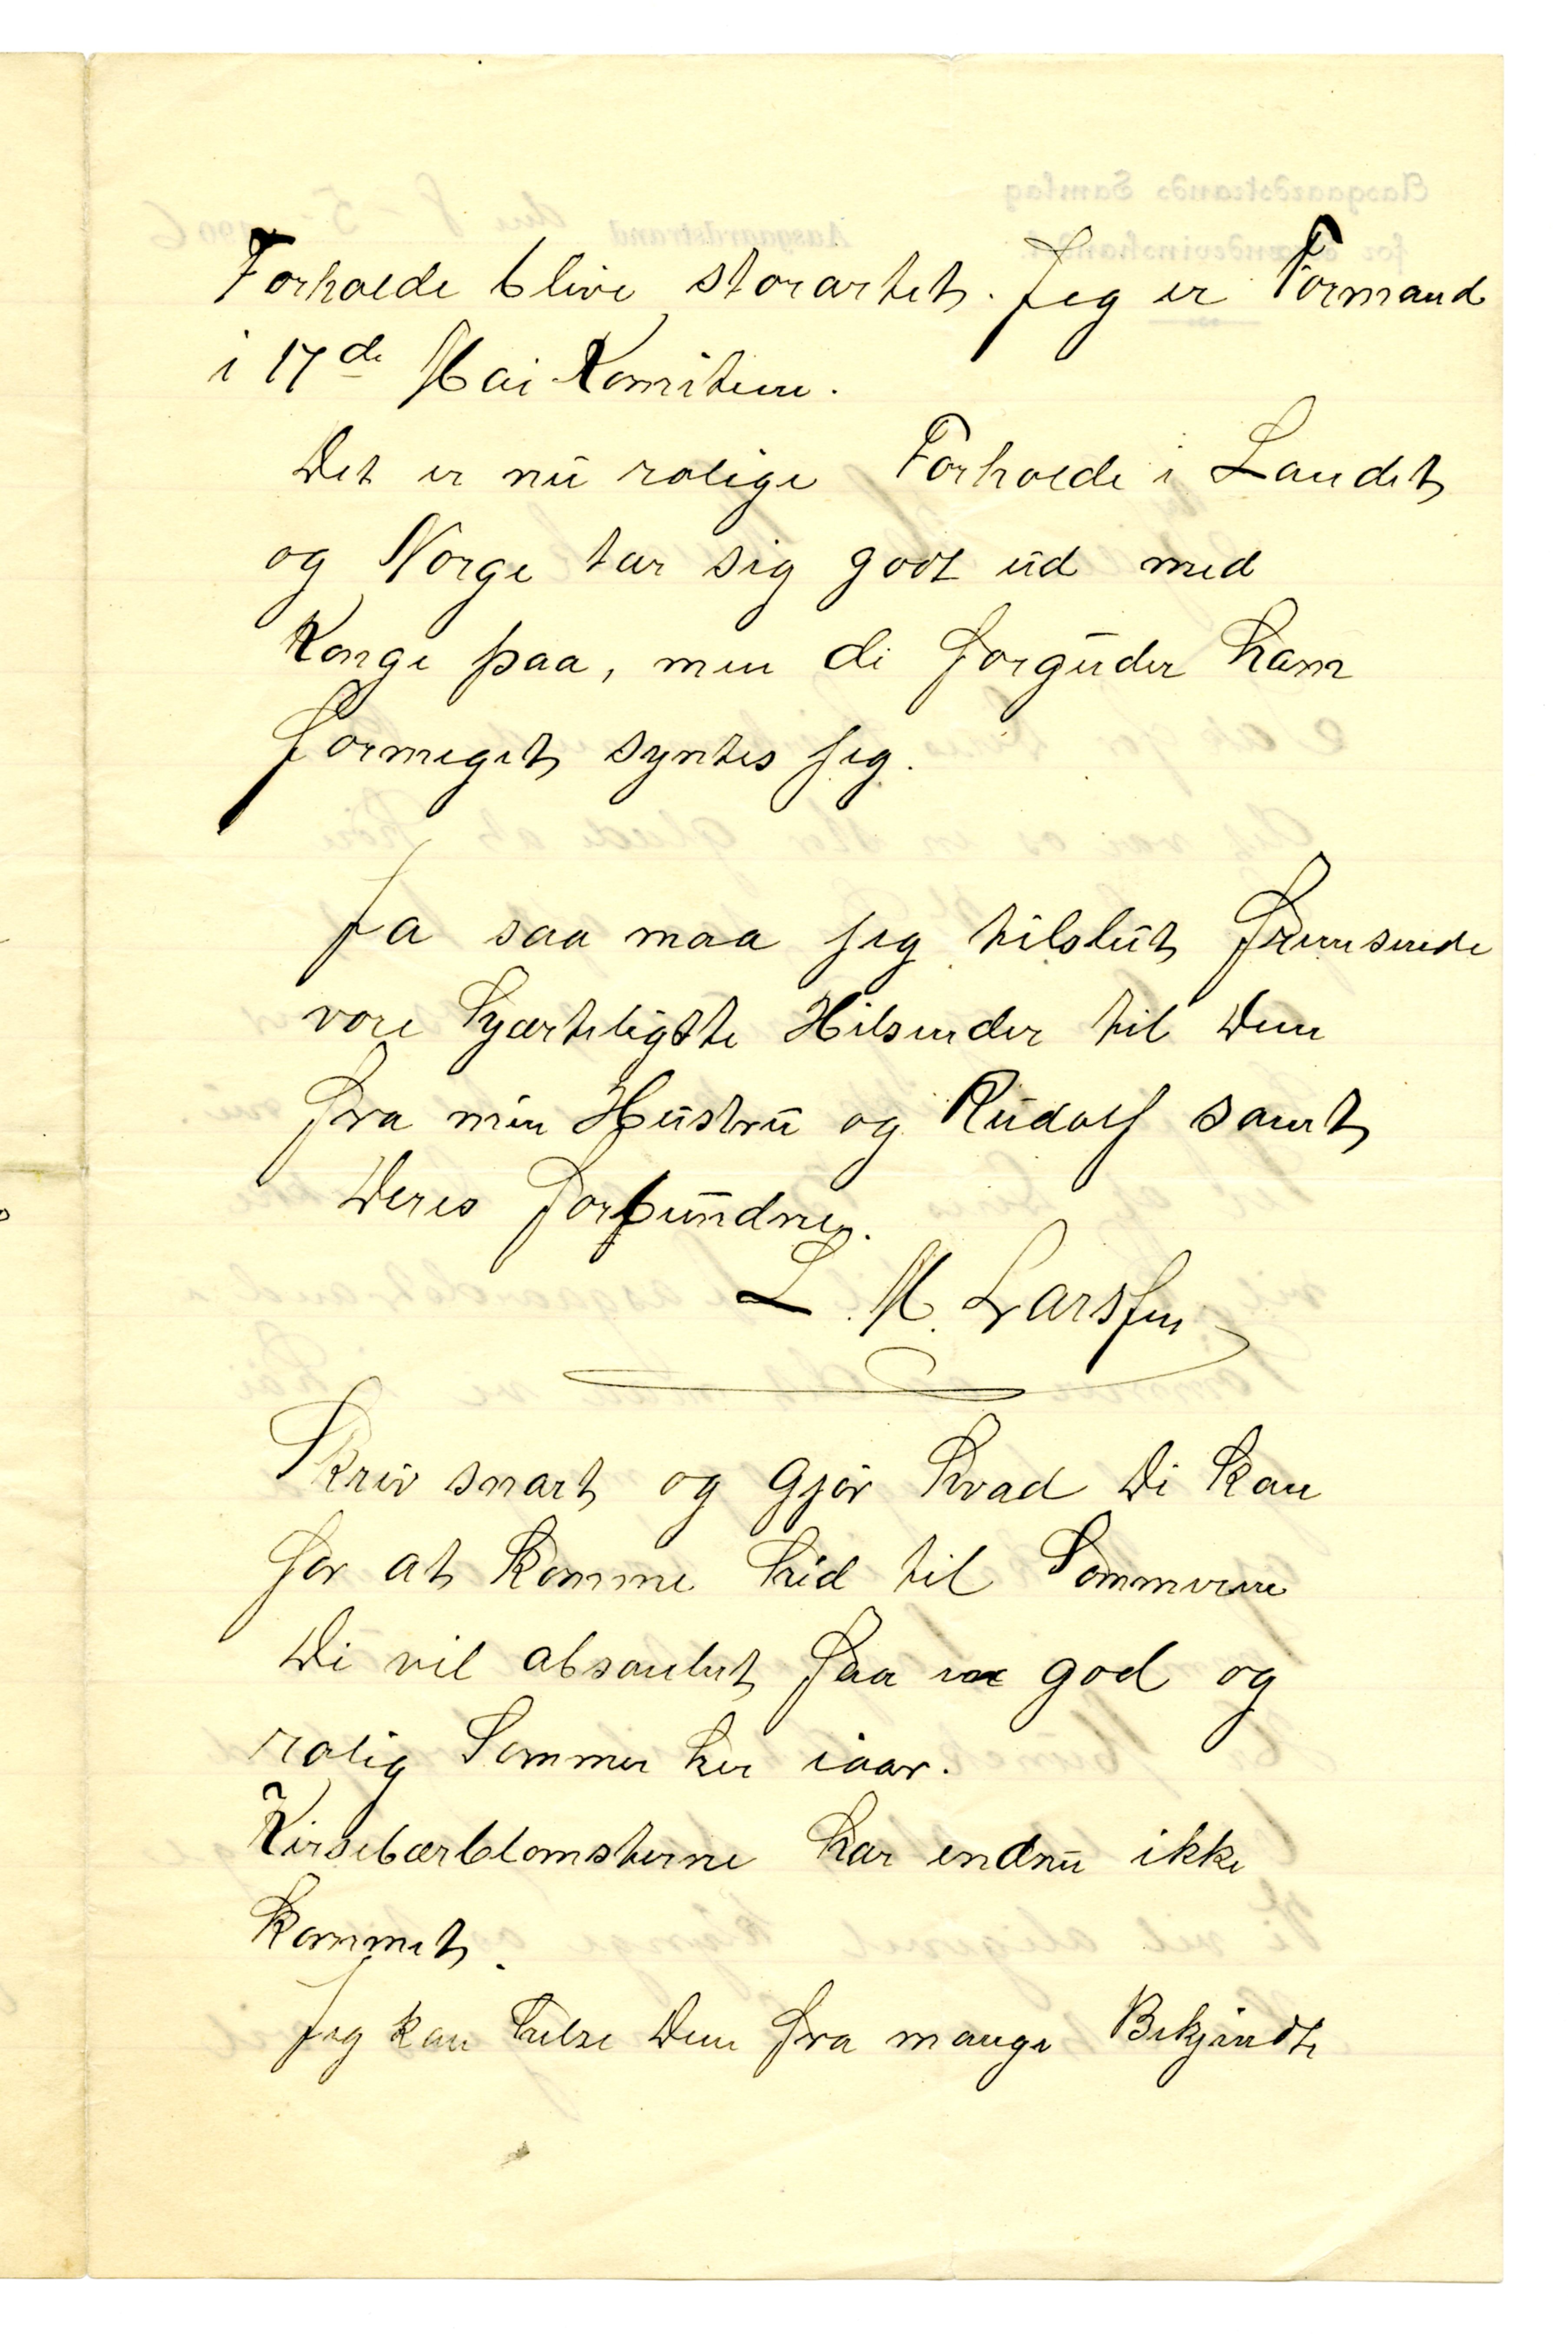 Forholde blive storartet. Jeg er Formand
i 17de Mai Komiteen.
Det er nu rolige Forholde i Landet
og Norge tar sig godt ud med
Konge paa, men de forguder ham
formeget syntes jeg.
Ja saa maa jeg tilslut fremsende
vore hjærteligste Hilsender til Dem
fra min Hustru og Rudolf samt
Deres forbundne.
L. M. Larssen
Skriv snart og gjør hvad De kan
for at komme hid til Sommeren
De vil absoulut faa en god og
rolig Sommer her iaar.
Kirsebærblomsterne har endnu ikke
kommet.
Jeg kan helse Dem fra mange Bekjendte